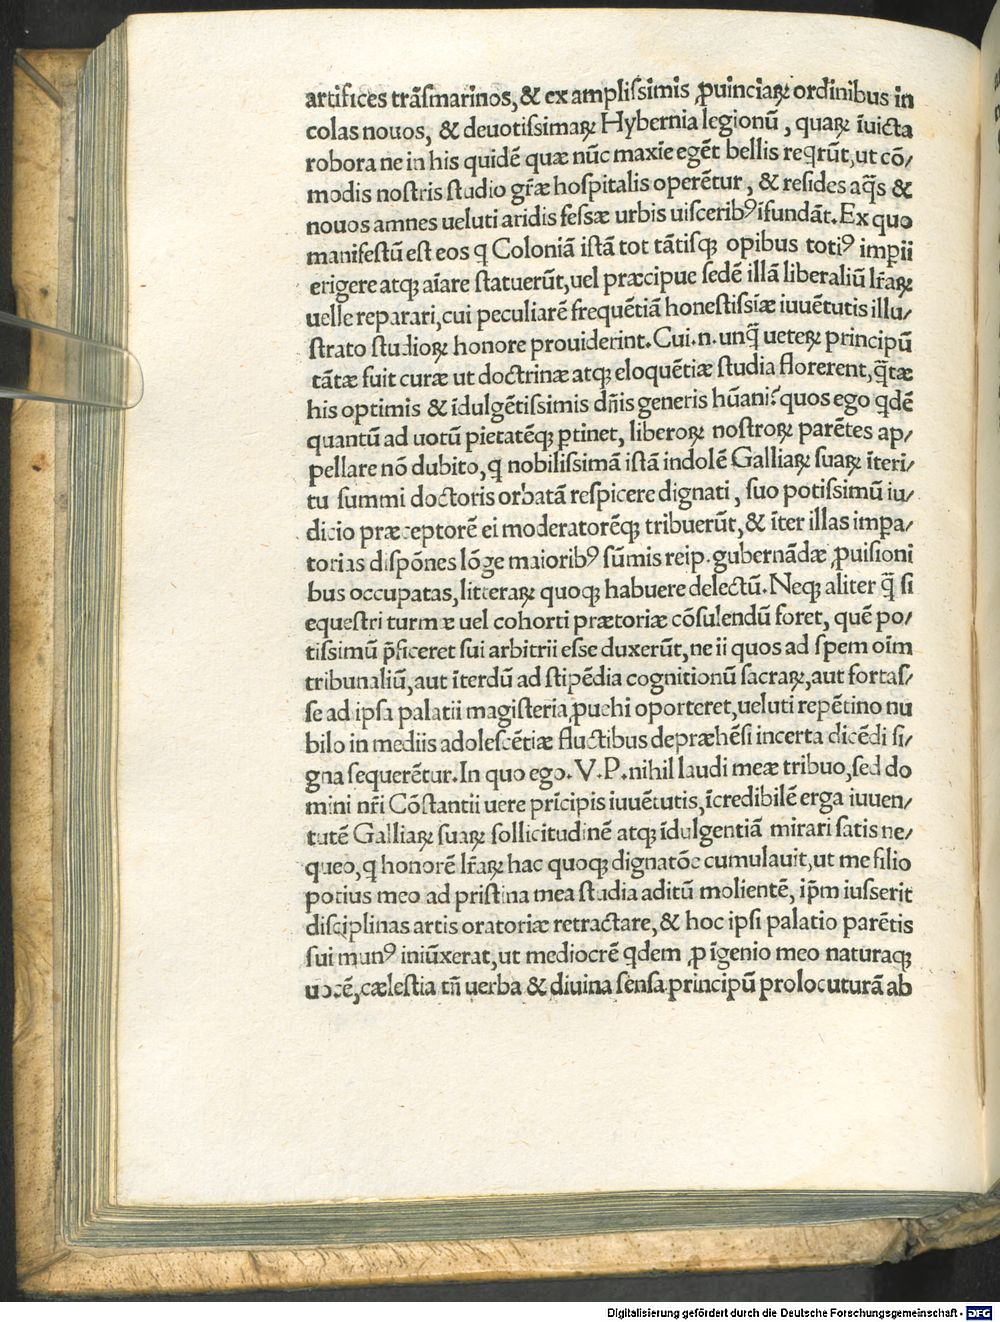 artifices trãſmarinos, & ex ampliſsimis ꝓuinciaꝝ ordinibus in
colas nouos, & deuotiſsimaꝝ Hybernia legionũ, quaꝝ ĩuicta
robora ne in his quidẽ quæ nũc maxĩe egẽt bellis reqrũt, ut cõ/
modis noſtris ſtudio gr̃æ hoſpitalis operẽtur, & reſides aq̃s &
nouos amnes ueluti aridis feſsæ urbis uiſceribꝰ ĩfundãt. Ex quo
manifeſtũ eſt eos q Coloniã iſtã tot tãtiſqꝫ opibus totiꝰ imꝑii
erigere atqꝫ aĩare ſtatuerũt, uel præcipue ſedẽ illã liberaliũ lr̃aꝝ
uelle reparari, cui peculiarẽ frequẽtiã honeſtiſsiæ iuuẽtutis illu/
ſtrato ſtudioꝝ honore prouiderint. Cui. n. unq̃ ueteꝝ principũ
tãtæ fuit curæ ut doctrinæ atqꝫ eloquẽtiæ ſtudia florerent, q̃tæ
his optimis & ĩdulgẽtiſsimis dñis generis hũani? quos ego qdẽ
quantũ ad uotũ pietatẽqꝫ ꝑtinet, liberoꝝ noſtroꝝ parẽtes ap/
pellare nõ dubito, q nobiliſsimã iſtã indolẽ Galliaꝝ ſuaꝝ ĩteri/
tu ſummi doctoris orbatã reſpicere dignati, ſuo potiſsimũ iu/
dicio præceptorẽ ei moderatorẽqꝫ tribuerũt, & ĩter illas imꝑa/
torias diſpõnes lõge maioribꝰ ſũmis reip. gubernãdæ ꝓuiſioni
bus occupatas, litteraꝝ quoqꝫ habuere delectũ. Neqꝫ aliter q̃ ſi
equeſtri turmæ uel cohorti prætoriæ cõſulendũ foret, quẽ po/
tiſsimũ p̃ficeret ſui arbitrii eſse duxerũt, ne ii quos ad ſpem oĩm
tribunaliũ, aut ĩterdũ ad ſtipẽdia cognitionũ ſacraꝝ, aut fortaſ/
ſe ad ipſa palatii magiſteria ꝓuehi oporteret, ueluti repẽtino nu
bilo in mediis adoleſcẽtiæ fluctibus depræhẽſi incerta dicẽdi ſi/
gna ſequerẽtur. In quo ego. V. P. nihil laudi meæ tribuo, ſed do
mini nr̃i Cõſtantii uere prĩcipis iuuẽtutis, ĩcredibilẽ erga iuuen/
tutẽ Galliaꝝ ſuaꝝ ſollicitudinẽ atqꝫ ĩdulgentiã mirari ſatis ne/
queo, q honorẽ lr̃aꝝ hac quoqꝫ dignatõe cumulauit, ut me filio
potius meo ad priſtina mea ſtudia aditũ molientẽ, ip̃m iuſserit
diſciplinas artis oratoriæ retractare, & hoc ipſi palatio parẽtis
ſui munꝰ iniũxerat, ut mediocrẽ qdem ꝓ ĩgenio meo naturaqꝫ
uocẽ, cæleſtia tñ uerba & diuina ſenſa principũ prolocuturã ab
Digitalisierung gefördert durch die Deutsche Forschungsgemeinschaft - DFG